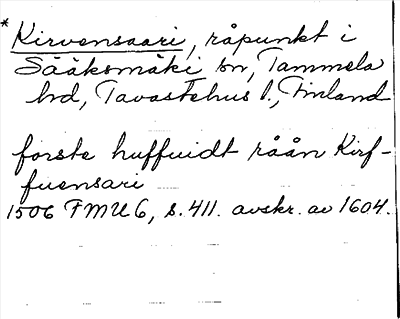 * Kirvensaari, råpunkt i
Sääksmäki sn, Tammela
hd, Tavastehus l., Finland
forste huffuidt råån Kirf-
fuensari
1506 FMU 6, s. 411. avskr. av 1604.